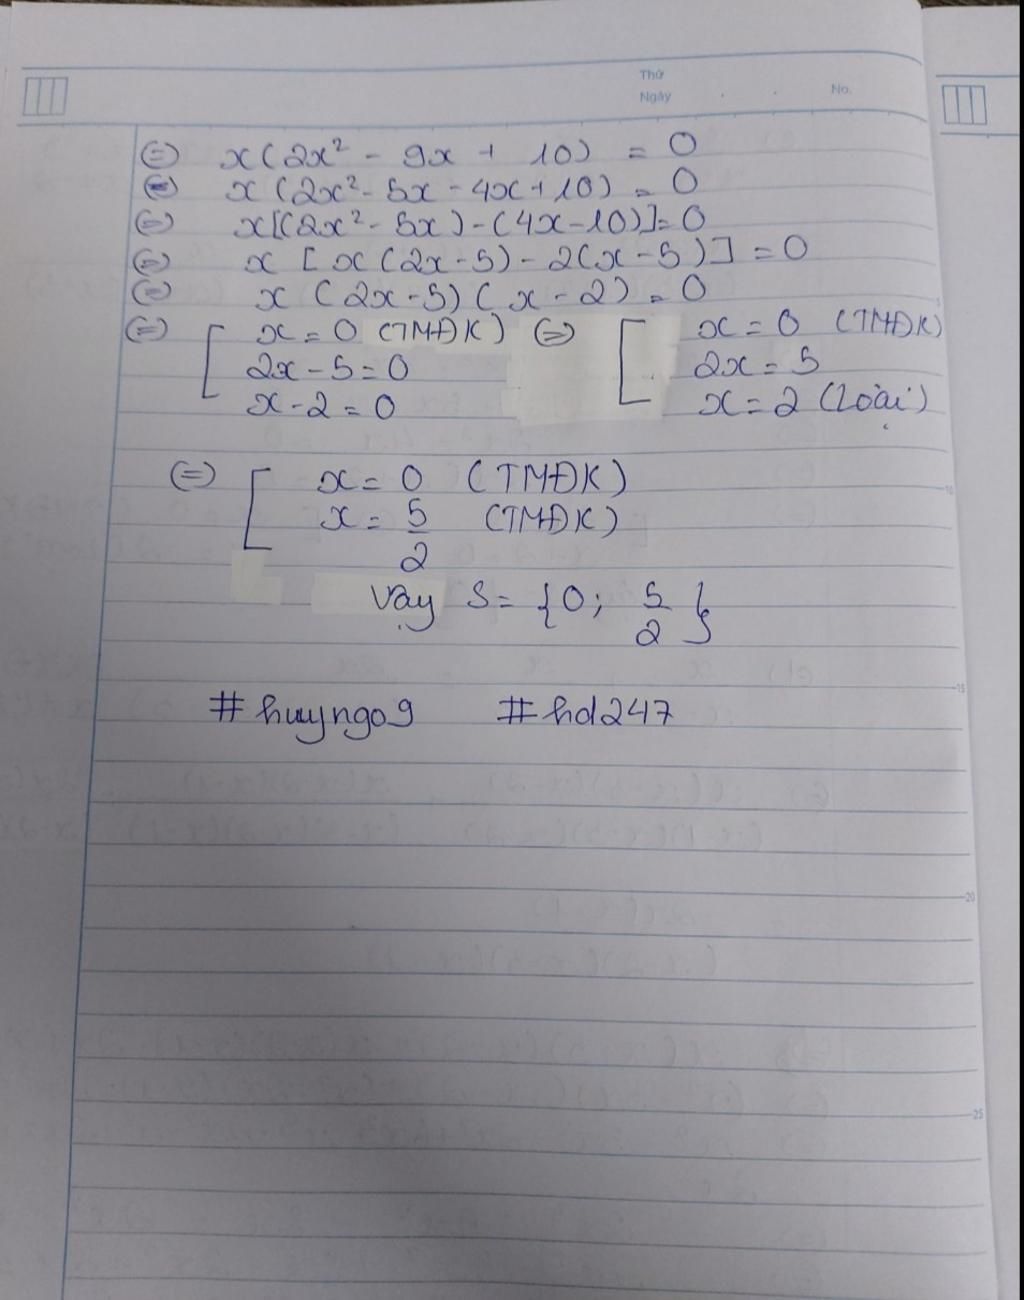 Thứ
Ngày . . No.
⇔ x(2x² - 9x + 10) = 0
⇔ x(2x² - 5x - 4x + 10) = 0
⇔ x[(2x² - 5x) - (4x - 10)] = 0
⇔ x [x(2x - 5) - 2(x - 5)] = 0
⇔ x (2x - 5)(x - 2) = 0
⇔ [ x = 0 (TMĐK) ⇔ [ x = 0 (TMĐK)
2x - 5 = 0 2x = 5
x - 2 = 0 x = 2 (Loại)
⇔ [ x = 0 (TMĐK)
x = 5/2 (TMĐK)
Vậy S = {0; 5/2}
#huyngo9 #hd247
10
15
20
25